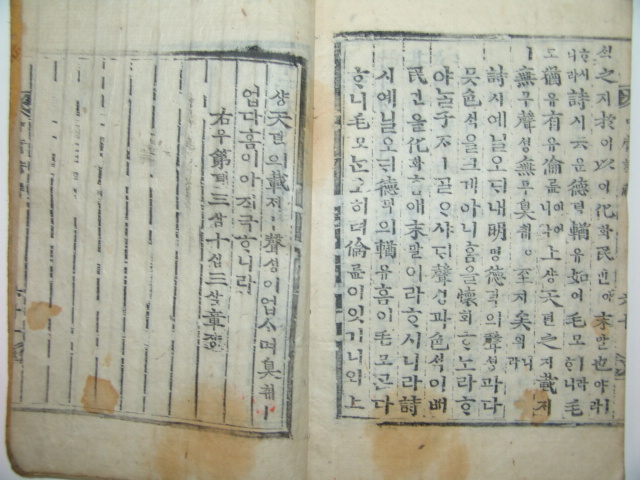 ᄉᆡᆨ之지於어以이化화民민애末말也야라
ᄒᆞ시니라詩시云운德덕輶유如여毛모ㅣ라ᄒᆞ니毛모
도猶유有유倫륜이어니와上샹天텬之지載ᄌᆡ
ㅣ無무聲셩無무臭ᄎᆔㅣ아至지矣의니라
詩시예닐오ᄃᆡ내明명德덕의聲셩과다
ᄆᆺ色ᄉᆡᆨ을크게아니홈을懷회ᄒᆞ노라ᄒᆞ
야ᄂᆞᆯ子ᄌᆞㅣᄀᆞᆯᄋᆞ샤ᄃᆡ聲셩과色ᄉᆡᆨ이ᄡᅥ
民민을化화홈애末말이라ᄒᆞ시니라詩
시예닐오ᄃᆡ德덕의輶유홈이毛모ᄀᆞᆮ다
ᄒᆞ니毛모ᄂᆞᆫ오히려倫륜이잇거니와上
샹天텬의載ᄌᆡㅣ聲셩이업스며臭ᄎᆔㅣ
업다홈이아지극ᄒᆞ니라
右우第뎨三삼十십三삼章쟝